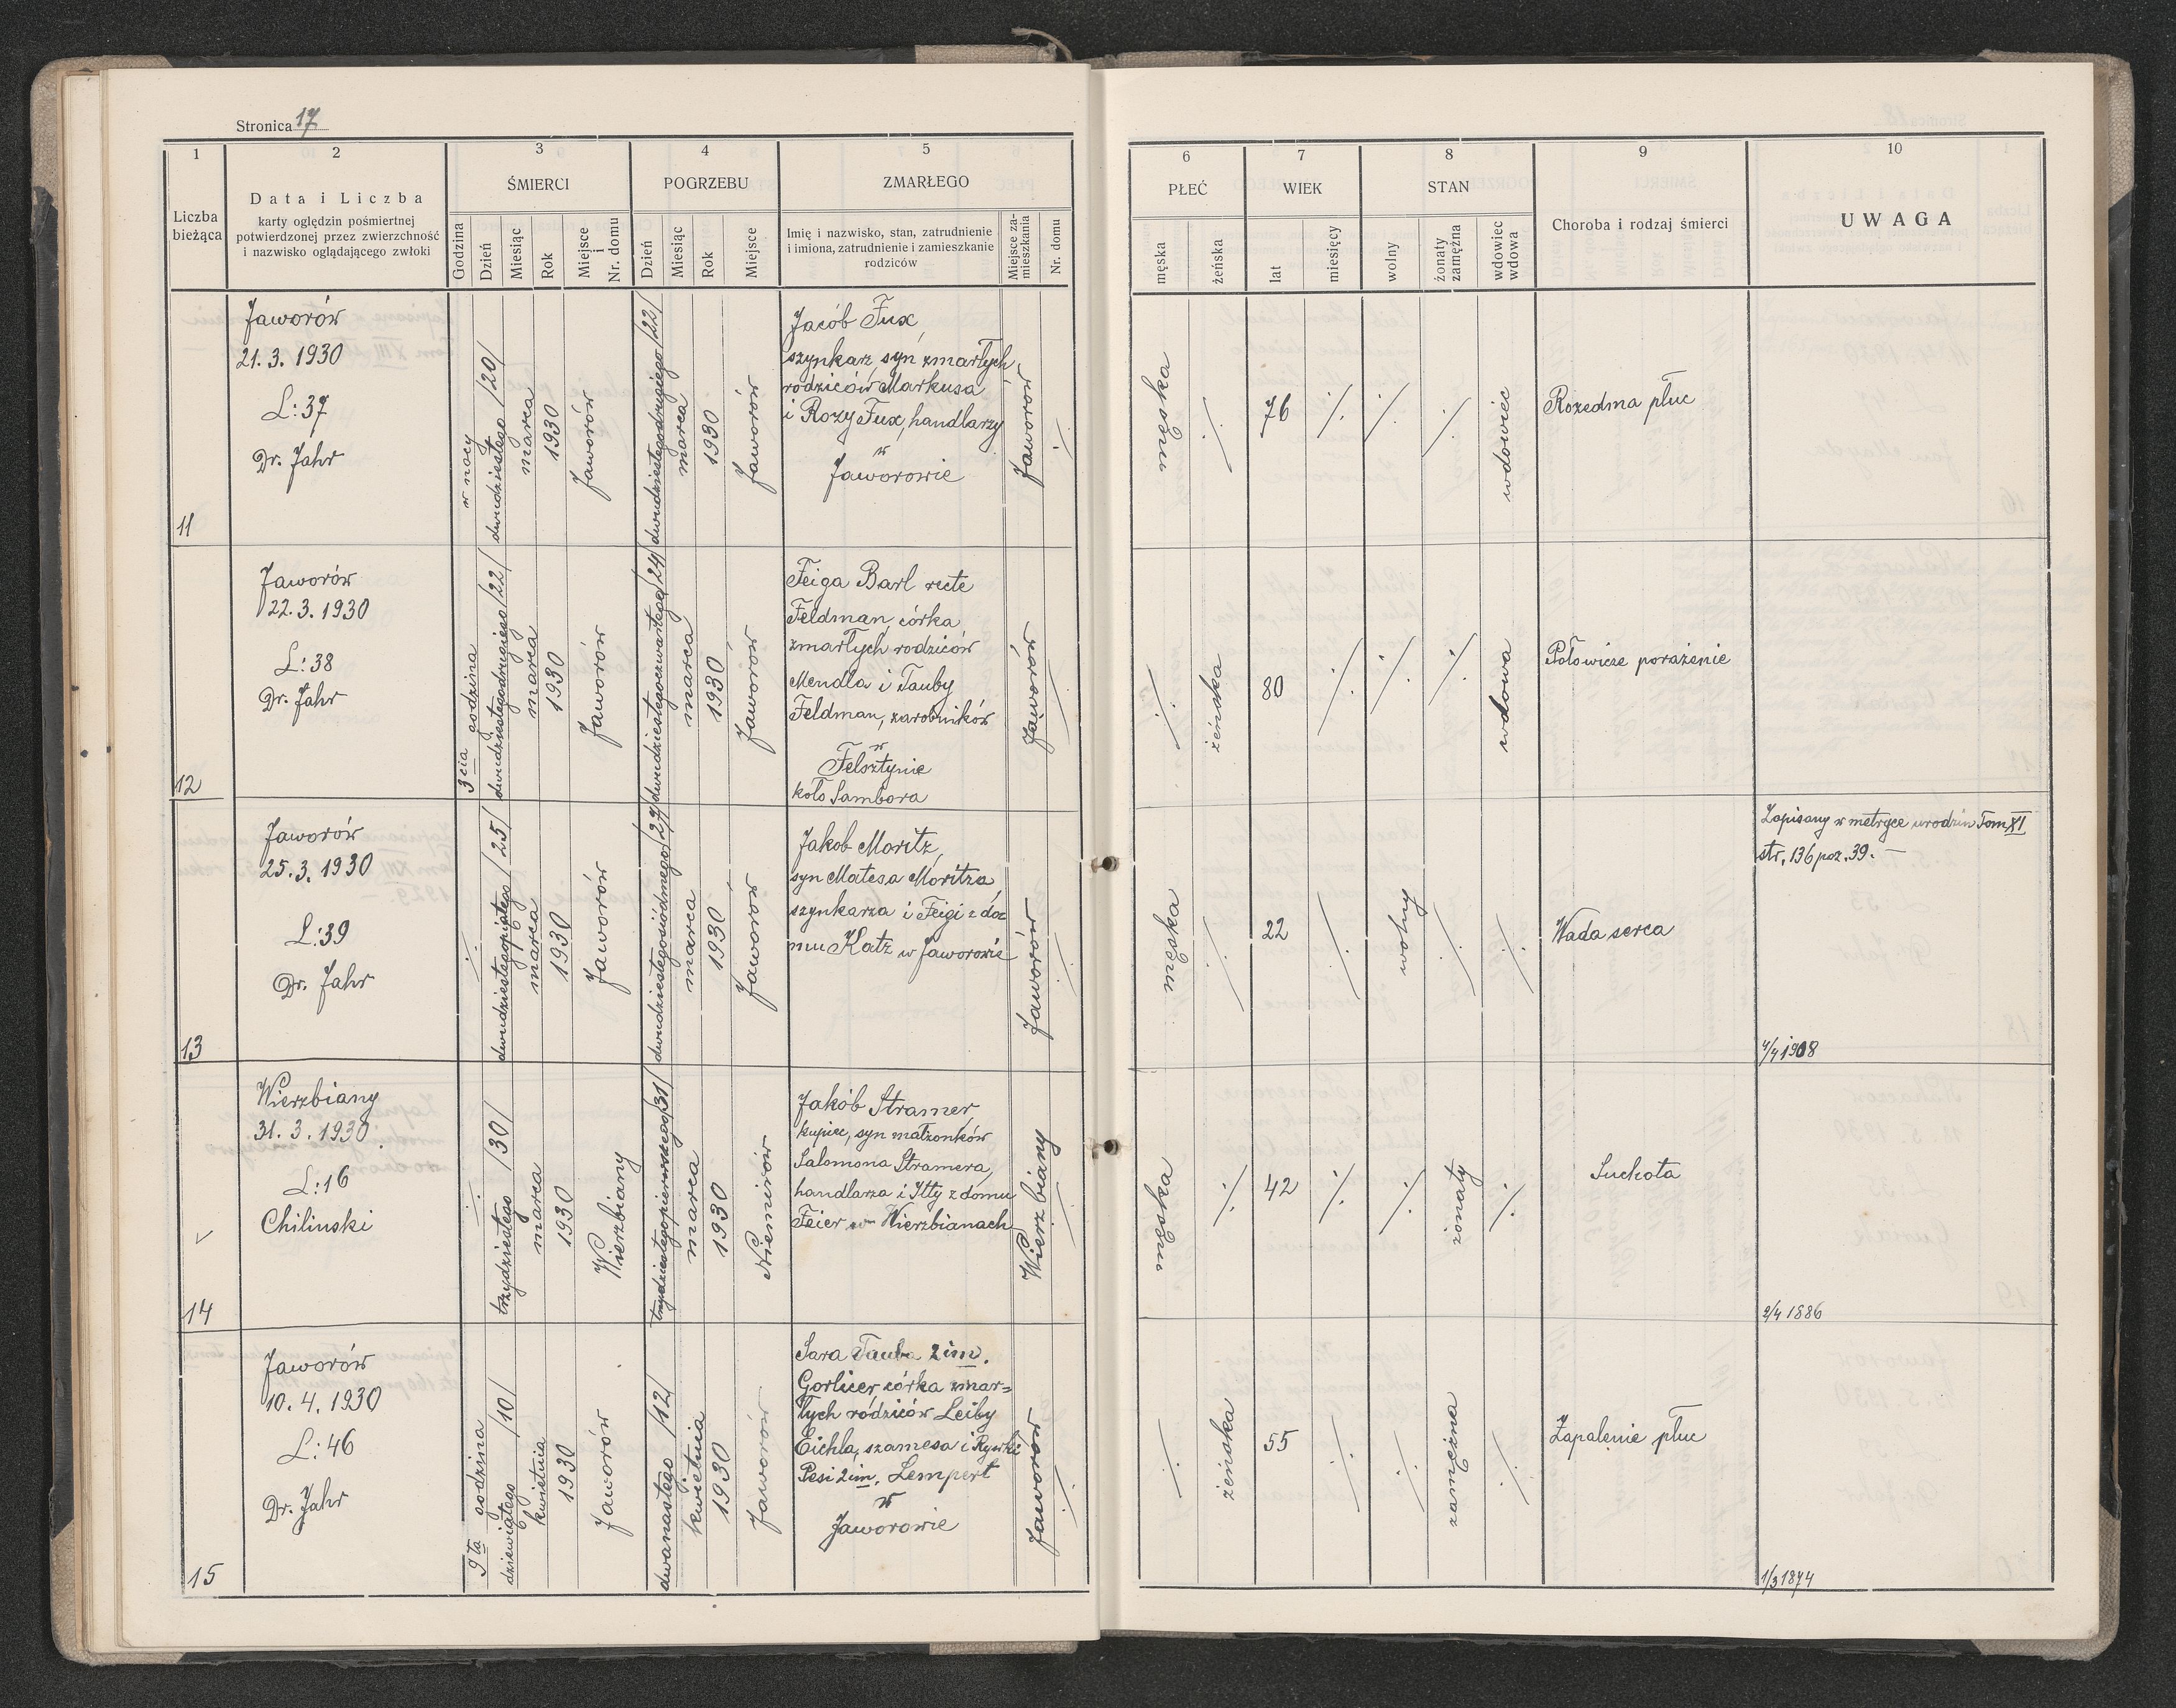 Stronica 17
1 2 3 4 5
Liczba bieżąca
Data i Liczba
karty oględzin pośmiertnej
potwierdzonej przez zwierzchność
i nazwisko oglądającego zwłoki
ŚMIERCI
Godzina
Dzień
Miesiąc
Rok
Miejsce i Nr. domu
POGRZEBU
Dzień
Miesiąc
Rok
Miejsce
ZMARŁEGO
Imię i nazwisko, stan, zatrudnienie
i imiona, zatrudnienie i zamieszkanie
rodziców
Miejsce za-
mieszkania
Nr. domu
6 7 8 9 10
PŁEĆ
męska
żeńska
WIEK
lat
miesięcy
STAN
wolny
żonaty
zamężna
wdowiec
wdowa
Choroba i rodzaj śmierci
UWAGA
11
Jaworów
21. 3. 1930
L: 37
Dr. Jahr
w nocy
dwudziestego /20/
marca
1930
Jaworów
dwudziestegodrugiego /22/
marca
1930
Jaworów
Jacób Fux,
szynkarz, syn zmarłych
rodziców Markusa
i Rozy Fux, handlarzy
w
Jaworowie
Jaworów
./.
męska
./.
76
./.
./.
./.
wdowiec
Rozedma płuc
12
Jaworów
22. 3. 1930
L: 38
Dr. Jahr
3cia godzina
dwudziestegodrugiego /22/
marca
1930
Jaworów
dwudziestegoczwartego /24/
marca
1930
Jaworów
Feiga Barl recte
Feldman, córka
zmarłych rodziców
Mendla i Tauby
Feldman, zarobników
w
Felsztynie
koło Sambora
Jaworów
./.
./.
żeńska
80
./.
./.
./.
wdowa
Połowicze porażenie
13
Jaworów
25. 3. 1930
L: 39
Dr. Jahr
./.
dwudziestegopiątego /25/
marca
1930
Jaworów
dwudziestegosiódmego /27/
marca
1930
Jaworów
Jakob Moritz,
syn Matesa Moritza,
szynkarza i Feigi z do=
mu Katz w Jaworowie
Jaworów
./.
męska
./.
22
./.
wolny
./.
./.
Wada serca
Zapisany w metryce urodzin Tom XI
str. 136 poz. 39. —
4/4 1908
14
Wierzbiany
31. 3. 1930
L: 16
Chilinski
./.
trzydziestego /30/
marca
1930
Wierzbiany
trzydziestegopierwszego /31/
marca
1930
Niemirów
Jakób Stramer,
kupiec, syn małżonków
Salomona Stramera,
handlarza i Itty z domu
Feier w Wierzbianach
Wierzbiany
./.
męska
./.
42
./.
./.
żonaty
./.
Suchota
2/4 1886
15
Jaworów
10. 4. 1930
L: 46
Dr. Jahr
9ta godzina
dziewiątego /10/
kwietnia
1930
Jaworów
dwanastego /12/
kwietnia
1930
Jaworów
Sara Tauba 2 im.
Gorlicer, córka zmar=
łych rodziców Leiby
Eichla, szamesa i Rywki
Pesi 2 im. Lempert
w
Jaworowie
Jaworów
./.
./.
żeńska
55
./.
./.
zamężna
./.
Zapalenie płuc
1/3 1874